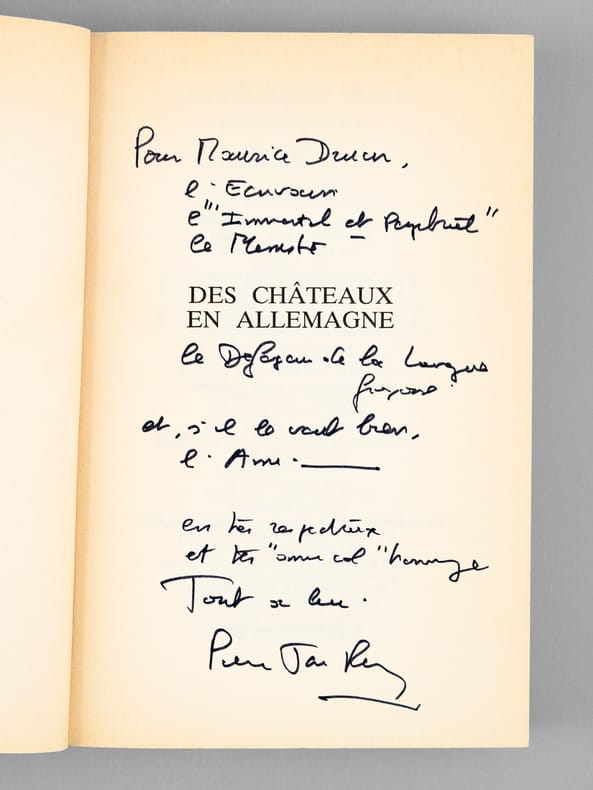 Pour Maurice Druon,
l'Ecrivain
l'"Immortel et Perpétuel"
le Ministre –
DES CHÂTEAUX
EN ALLEMAGNE
le Défenseur de la Langue
française
et, s'il le veut bien,
l'Ami.
en très respectueux
et très "amical" hommage
Tout à lui.
Pierre Jean Rémy